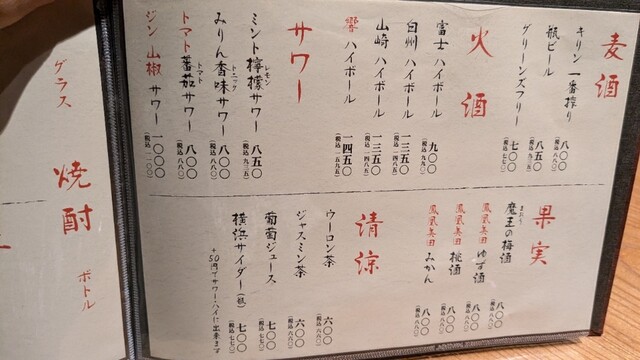 麦酒
キリン 一番搾り 八〇〇
(税込 八八〇)
瓶ビール 八五〇
(税込 九三五)
グリーンズフリー 七〇〇
(税込 七七〇)
火酒
富士 ハイボール 九〇〇
(税込 九九〇)
白州 ハイボール 一三五〇
(税込 一四八五)
山崎 ハイボール 一三五〇
(税込 一四八五)
響 ハイボール 一四五〇
(税込 一五九五)
サワー
ミント檸檬サワー 八五〇
レモン
(税込 九三五)
みりん香味サワー 八〇〇
トニック
(税込 八八〇)
トマト蕃茄サワー 八〇〇
トマト
(税込 八八〇)
ジン 山椒 サワー 一〇〇〇
(税込 一一〇〇)
果実
魔王の梅酒 八〇〇
まおう
(税込 八八〇)
鳳凰美田 ゆず酒 八〇〇
(税込 八八〇)
鳳凰美田 桃酒 八〇〇
(税込 八八〇)
鳳凰美田 みかん 八〇〇
(税込 八八〇)
清涼
ウーロン茶 六〇〇
(税込 六六〇)
ジャスミン茶 六〇〇
(税込 六六〇)
葡萄ジュース 七〇〇
(税込 七七〇)
横浜サイダー(瓶) 七〇〇
(税込 七七〇)
+50円でサワー・ハイに出来ます
グラス
焼酎
ボトル